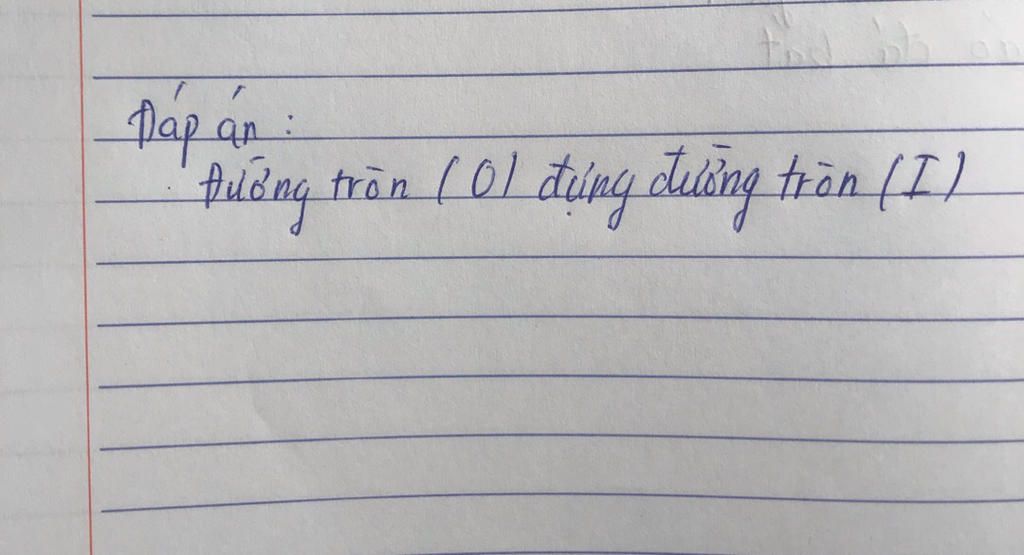 Đáp án :
Đường tròn (O) đựng đường tròn (I)